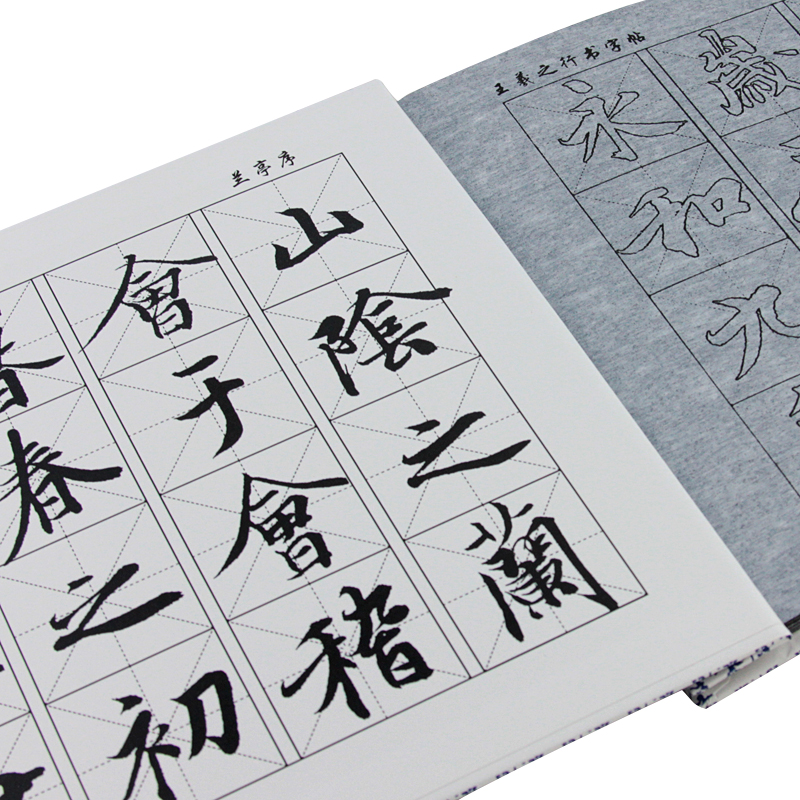 兰亭序
春之初
會于會稽
山陰之蘭
王羲之行书字帖
永和九
歲